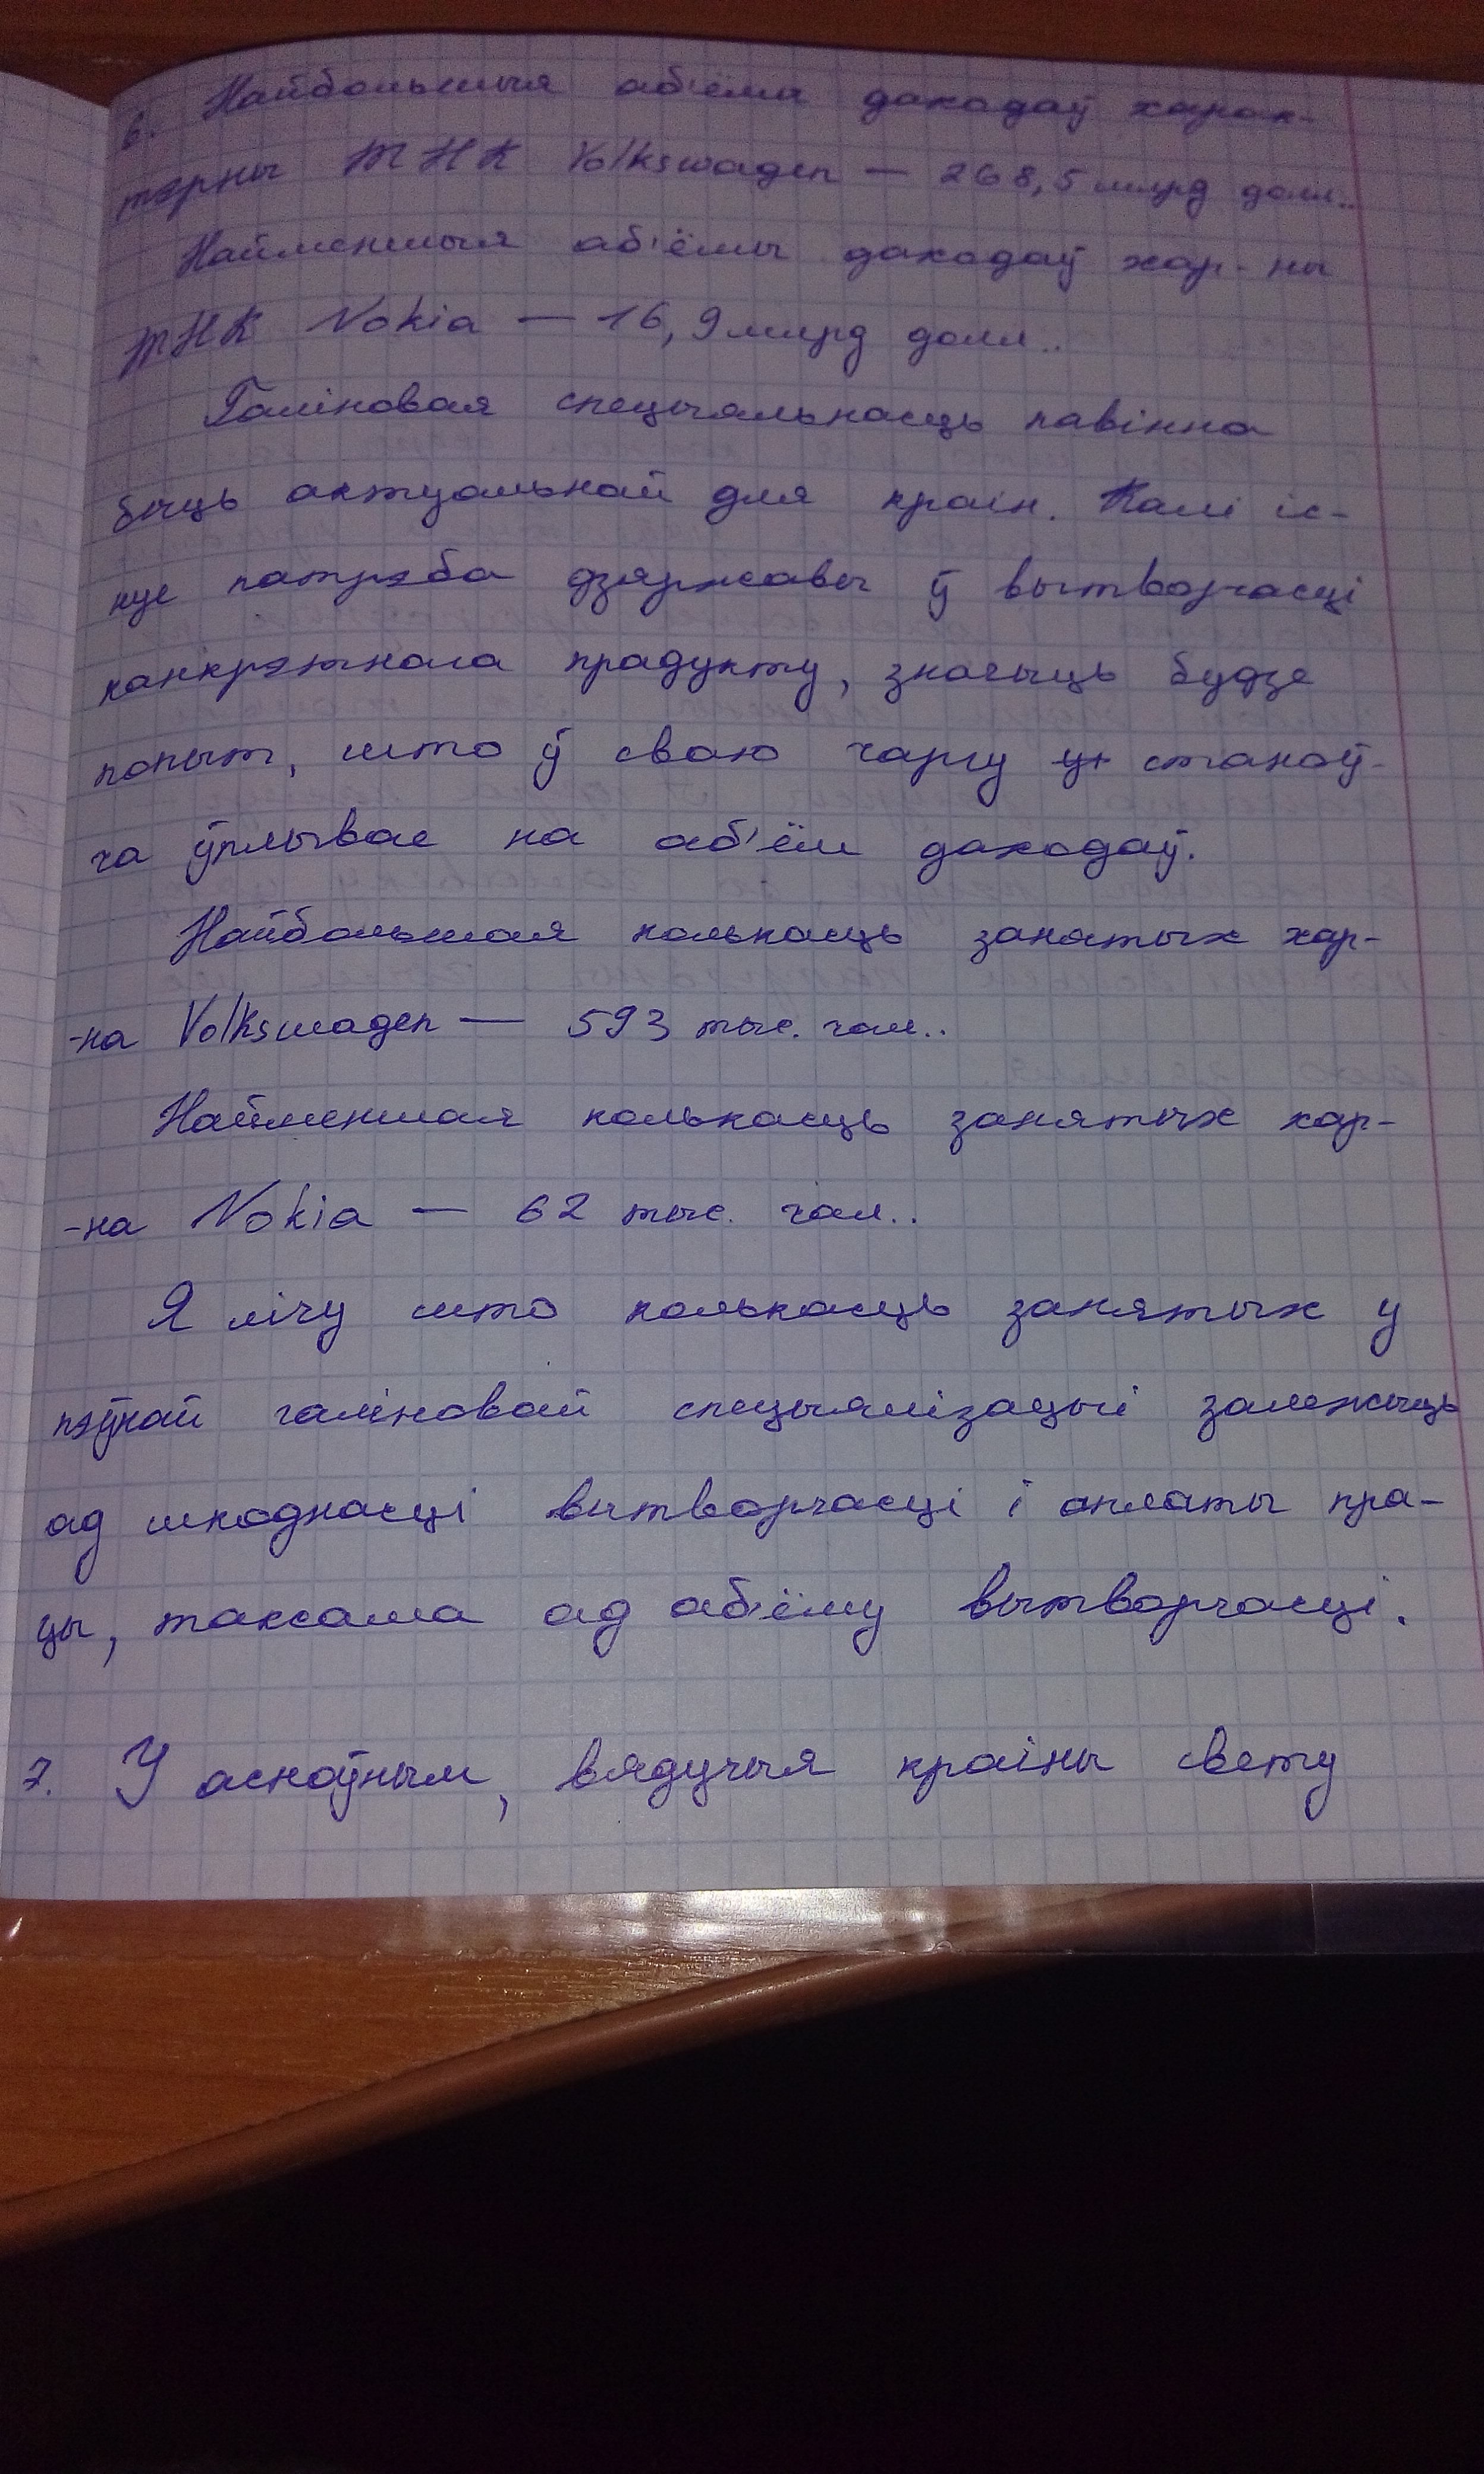 6. Найбольшыя аб'ёмы даходаў харак-
тэрны ТНК Volkswagen — 268,5 млрд дол..
Найменшыя аб'ёмы даходаў хар-ны
ТНК Nokia — 16,9 млрд дол..
Галіновая спецыяльнасць павінна
быць актуальнай для краін. Калі іс-
нуе патрэба дзяржавы ў вытворчасці
канкрэтнага прадукту, значыць будзе
попыт, што ў сваю чаргу станоў-
ча ўплывае на аб'ём даходаў.
Найбольшая колькасць занятых хар-
-на Volkswagen — 593 тыс. чал..
Найменшая колькасць занятых хар-
-на Nokia — 62 тыс. чал..
Я лічу што колькасць занятых у
пэўнай галіновай спецыялізацыі залежыць
ад шкоднасці вытворчасці і аплаты пра-
цы, таксама ад аб'ёму вытворчасці.
7. У асноўным, вядучыя краіны свету